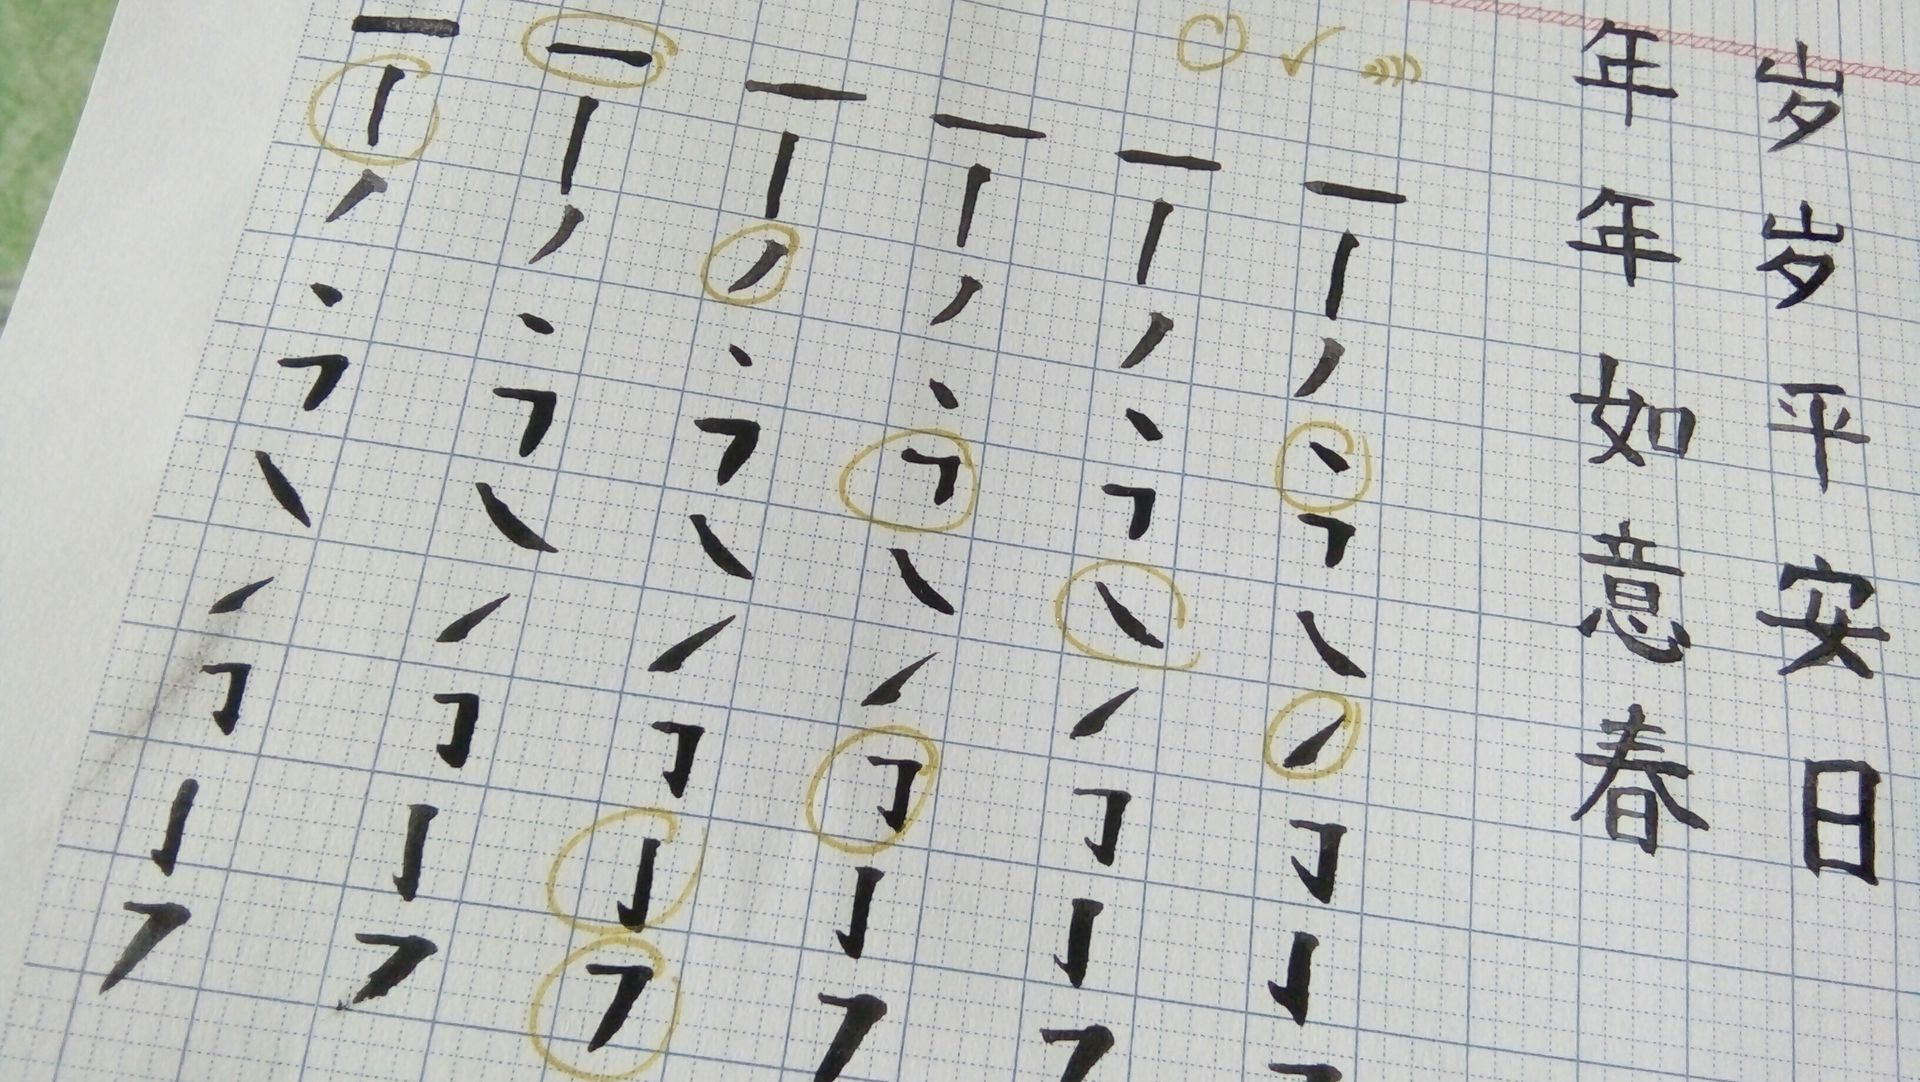 岁岁平安日
年年如意春